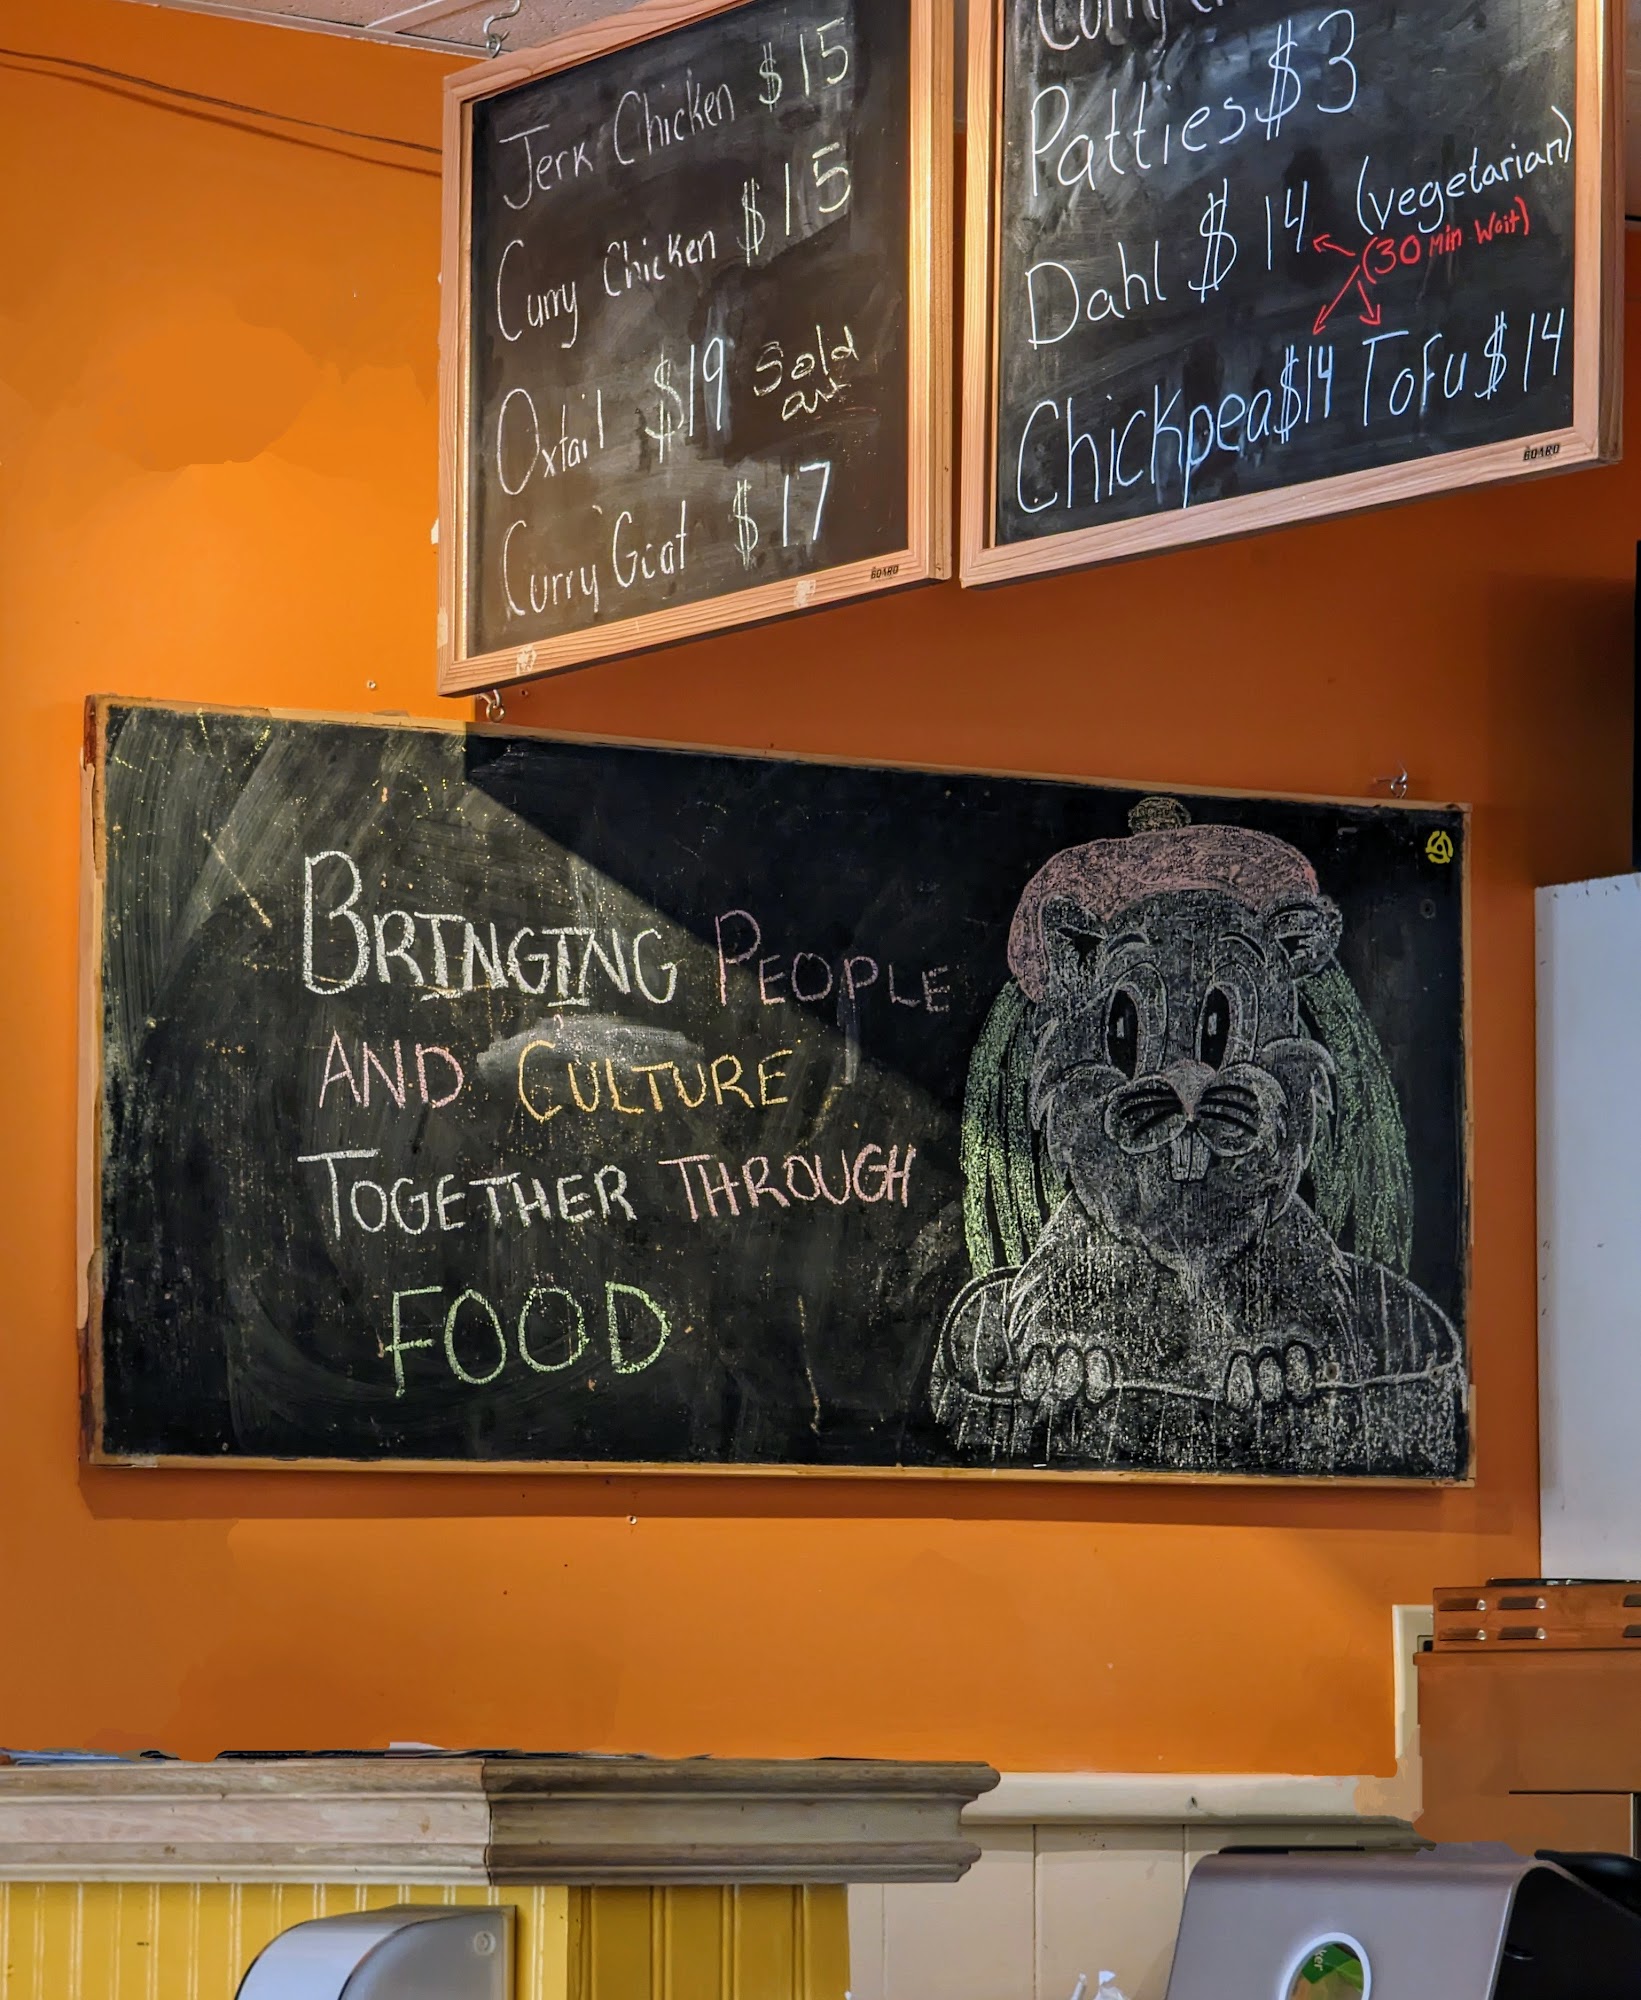 Jerk Chicken $15
Curry Chicken $15
Oxtail $19 Sold
out
Curry Goat $17
BOARD
Patties $3
Dahl $14 (vegetarian)
(30 Min Wait)
Chickpea $14 Tofu $14
BOARD
BRINGING PEOPLE
AND CULTURE
TOGETHER THROUGH
FOOD